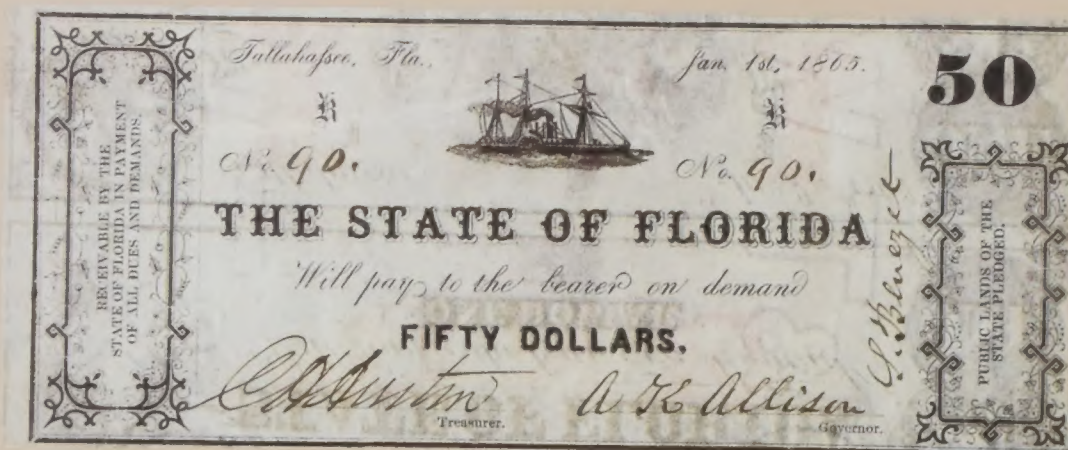 RECEIVABLE BY THE
STATE OF FLORIDA IN PAYMENT
OF ALL DUES AND DEMANDS.
Tallahaſsee, Fla.
Jan. 1st, 1865.
50
K
K
No. 90.
No. 90.
THE STATE OF FLORIDA
Will pay to the bearer on demand
FIFTY DOLLARS.
C H Austin
Treasurer.
A K Allison
Governor.
PUBLIC LANDS OF THE
STATE PLEDGED.